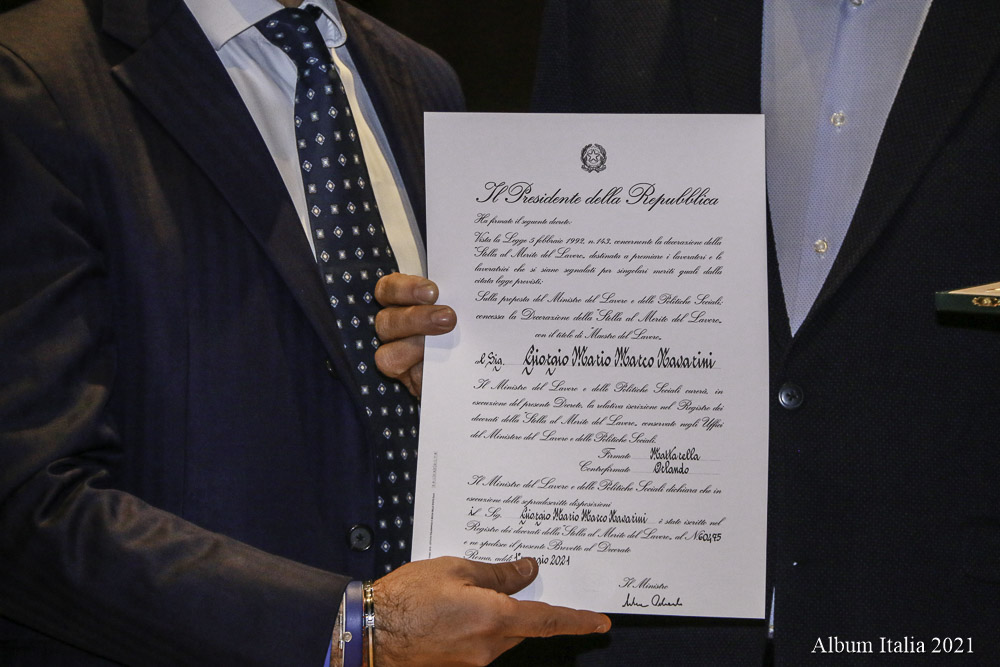 Il Presidente della Repubblica
Ha firmato il seguente decreto:
Vista la Legge 5 febbraio 1992, n. 143, concernente la decorazione della
"Stella al Merito del Lavoro„ destinata a premiare i lavoratori e le
lavoratrici che si siano segnalati per singolari meriti quali dalla
citata legge previsti;
Sulla proposta del Ministro del Lavoro e delle Politiche Sociali;
concessa la Decorazione della "Stella al Merito del Lavoro„
con il titolo di Maestro del Lavoro„
al Sig. Giorgio Mario Marco Navarini
Il Ministro del Lavoro e delle Politiche Sociali curerà, in
esecuzione del presente Decreto, la relativa iscrizione nel Registro dei
decorati della "Stella al Merito del Lavoro„ conservato negli Uffici
del Ministero del Lavoro e delle Politiche Sociali.
Firmato Mattarella
Controfirmato Orlando
Il Ministro del Lavoro e delle Politiche Sociali dichiara che in
esecuzione delle sopradescritte disposizioni
il Sig. Giorgio Mario Marco Navarini è stato iscritto nel
Registro dei decorati della "Stella al Merito del Lavoro„ al N60495
e ne spedisce il presente Brevetto al Decorato
Roma, addì 2021
Il Ministro
Album Italia 2021